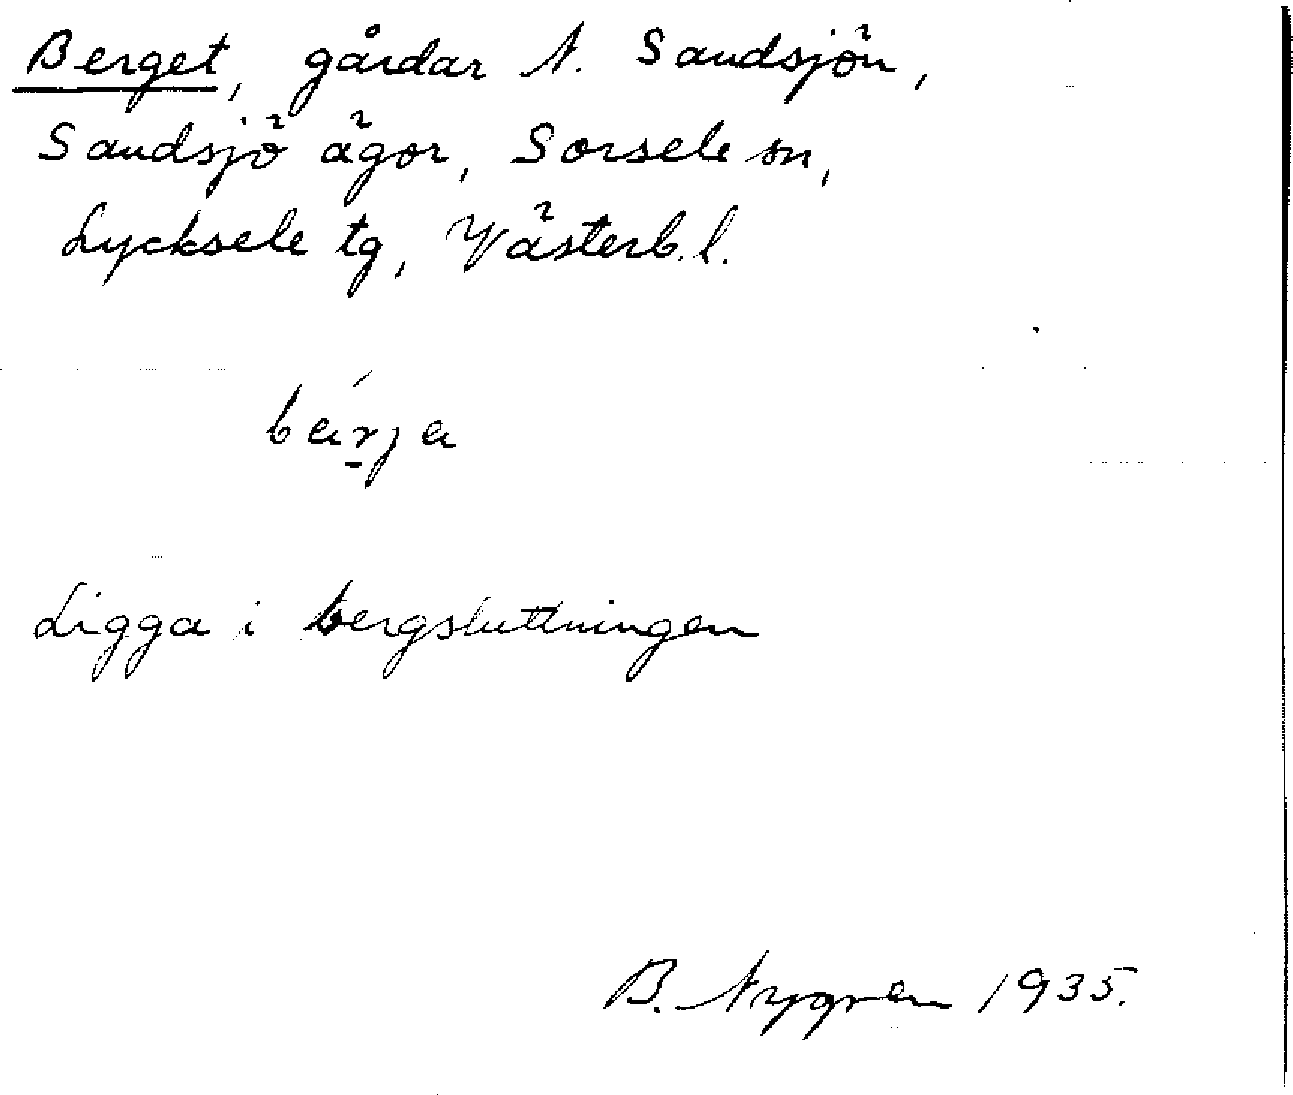 Berget, gårdar N. Sandsjön,
Sandsjö ägor, Sorsele sn,
Lycksele tg, Västerb. l.
bärja
Ligga i bergsluttningen
B. Nygren 1935.